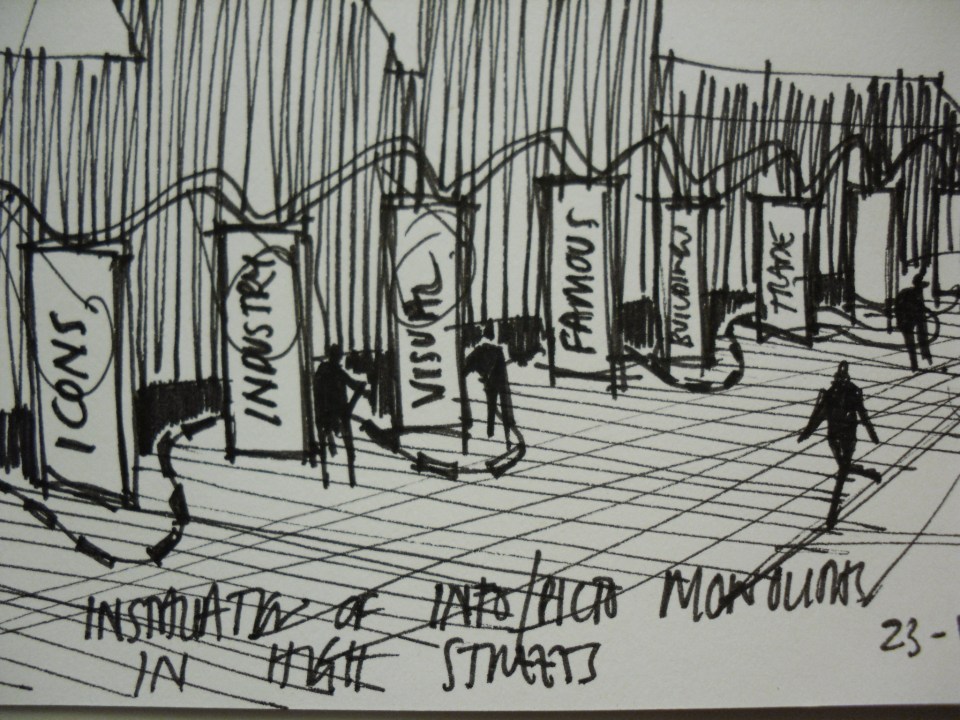 ICONS
INDUSTRY
VISUAL
FAMOUS
BUILDINGS
TRADE
INSTALLATION OF INFO/PICTO MONOLITHS
IN HIGH STREETS
23-